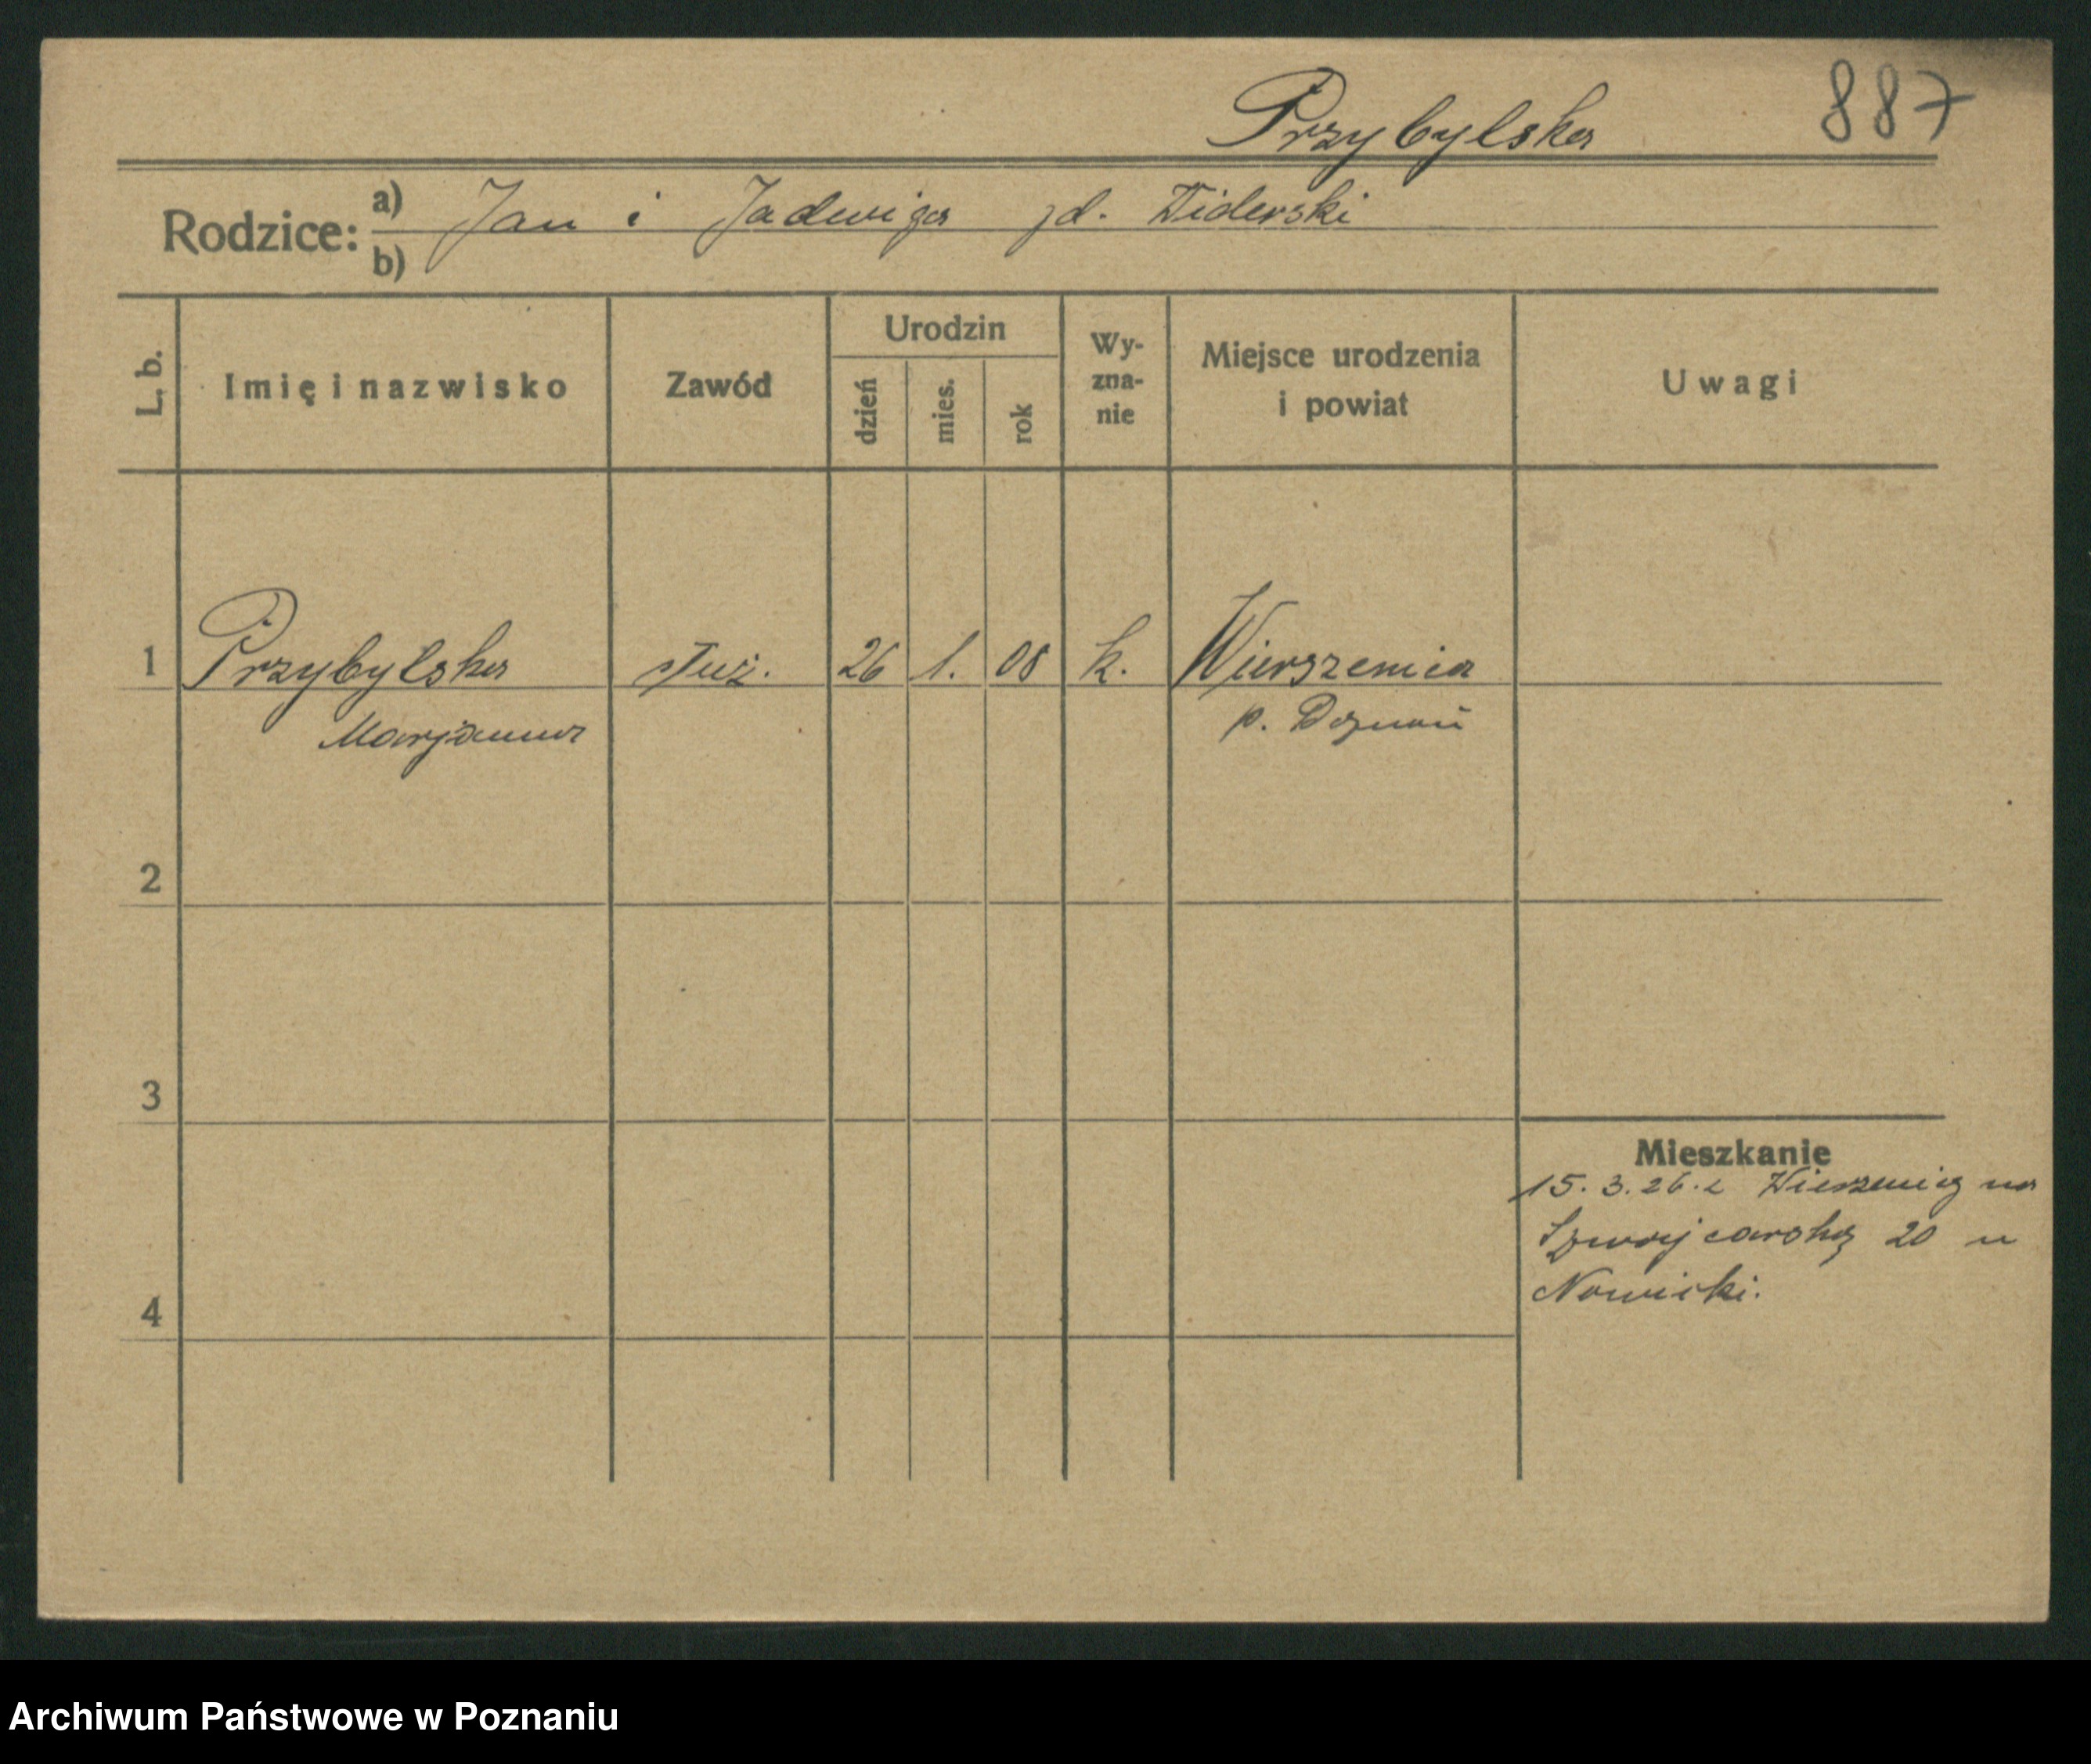 887
Przybylska
Rodzice: a) Jan i Jadwiga
b)
L. b.
Imię i nazwisko
Zawód
Urodzin
dzień
mies.
rok
Wy-
zna-
nie
Miejsce urodzenia
i powiat
Uwagi
1 Przybylska służ. 26 1. 08 k. Wierszenica
Marjanna p. Poznań
2
3
Mieszkanie
15. 3. 26. z na
Szwajcarską 20 u
Nowicki.
4
Archiwum Państwowe w Poznaniu